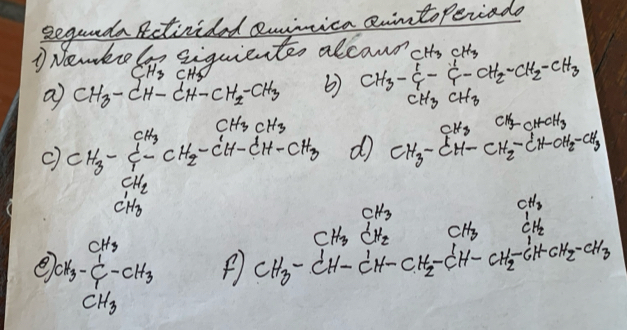 Segunda Actividad Química Quinto Periodo
1) Nombre los siguientes alcanos
CH3 CH3
a) CH3-CH-CH-CH2-CH3
CH3 CH3
b) CH3-C-C-CH2-CH2-CH3
CH3 CH3
CH3 CH3 CH3
c) CH3-C-CH2-CH-CH-CH3
CH2
CH3
CH3 CH3-CH-CH3
d) CH3-CH-CH2-CH-CH2-CH3
CH3
e) CH3-C-CH3
CH3
CH3 CH3
CH3 CH2 CH3 CH2
f) CH3-CH-CH-CH2-CH-CH2-CH-CH2-CH3